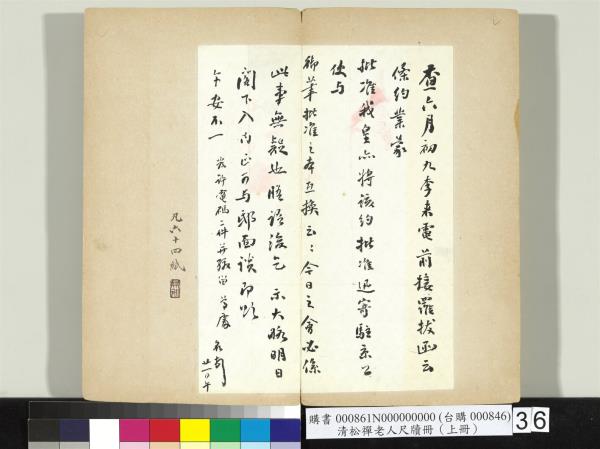 查六月初九李來電前接羅拔函云
條約業蒙
批准我皇亦將該約批准迅寄駐京公
使与
御筆批准之本互換云云今日之會必係
此事無疑也晤語後乞 示大略明日
閣下入内正可与邸面談即頌
午安不一
發許電碼二件并張 廿一日午
凡六十四紙
購書 000861N000000000 (台購 000846)
清松禪老人尺牘冊（上冊）
36